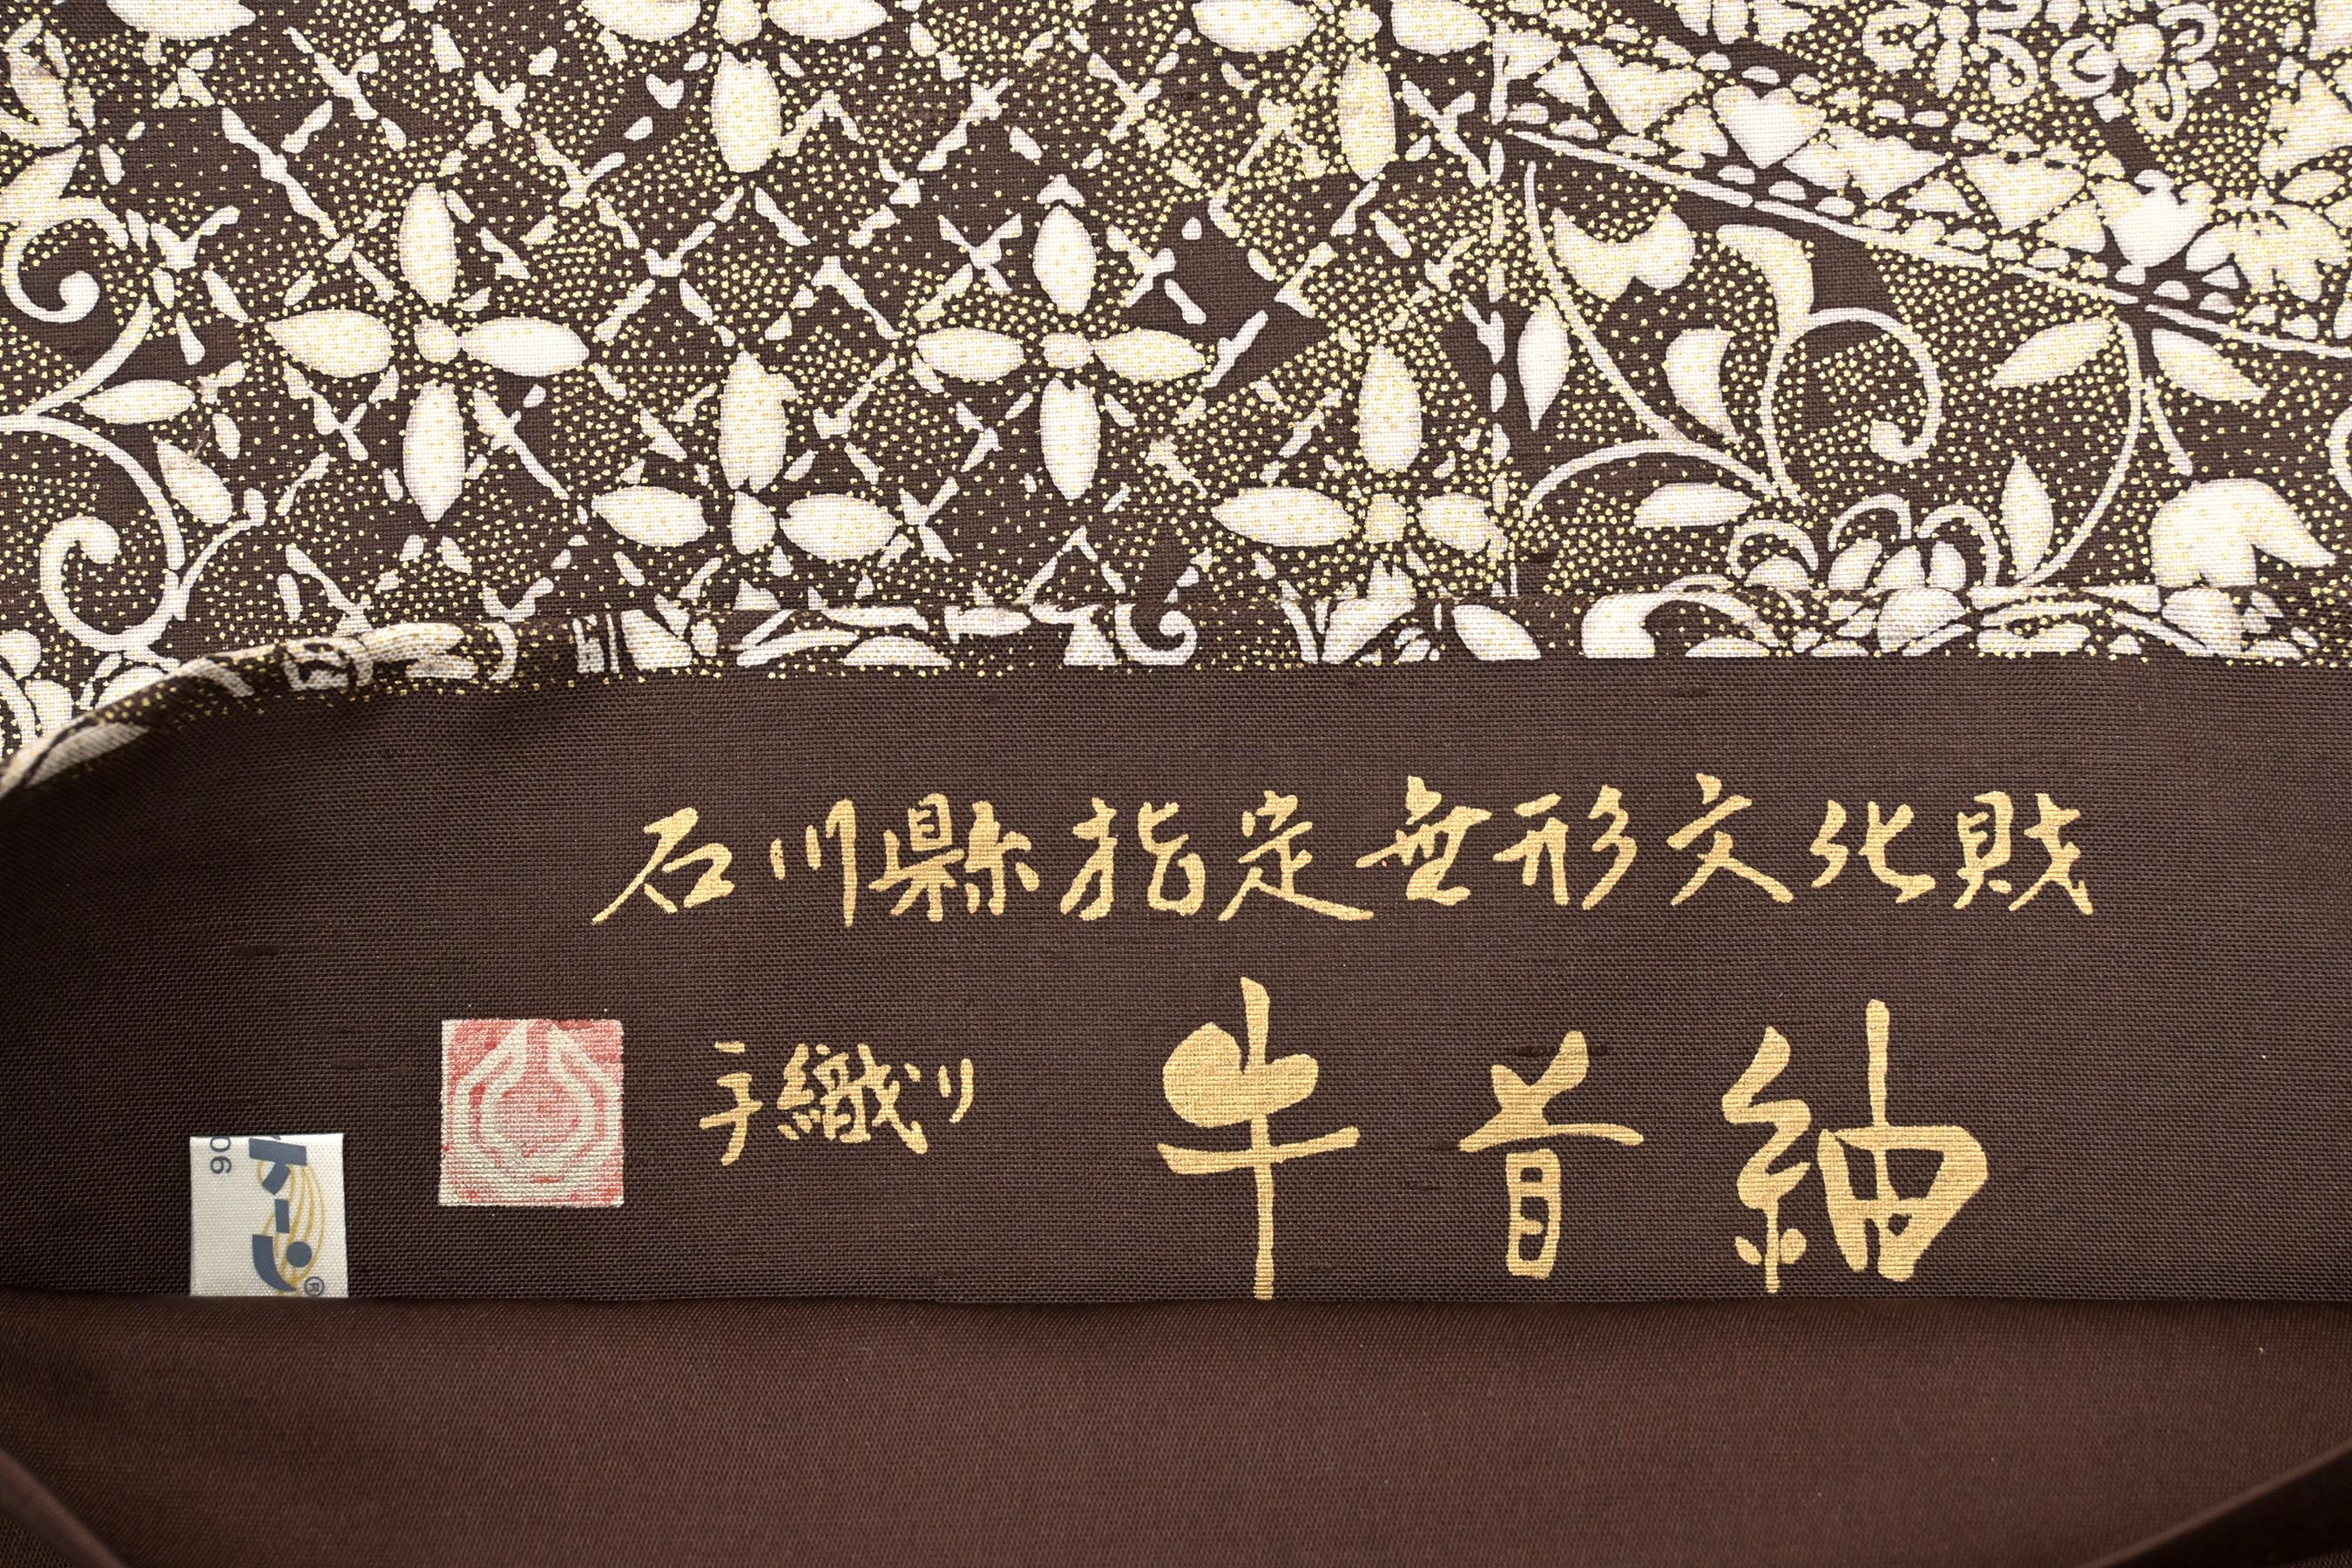 石川縣指定無形文化財
手織り 牛首紬
06
トーン®